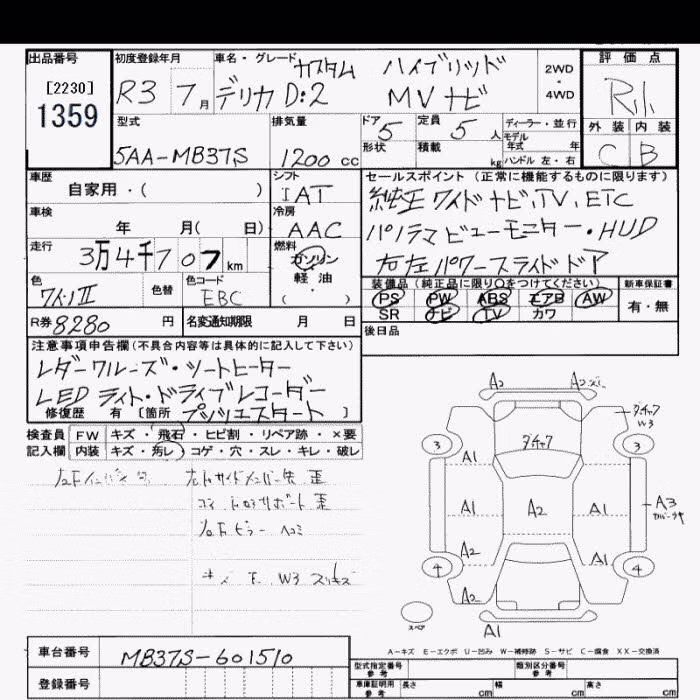 出品番号
[2230]
1359
初度登録年月
R3 7月
車名・グレード カスタム ハイブリッド
デリカ D:2 MV ナビ
2WD
・
4WD
評価点
R小
外装 内装
C B
型式
5AA-MB37S
排気量
1200 cc
ドア 5
形状
定員 5 人
積載 kg
ディーラー・並行
モデル年式 年
ハンドル 左・右
車歴
自家用・( )
シフト
IAT
車検
年 月( 日)
冷房
AAC
走行
3万4千707km
燃料
ガソリン
・
軽油
( ・ )
色
ワインII
色替
色コード
EBC
R券 8280 円
名変通知期限 月 日
セールスポイント (正常に機能するものに限ります)
純正ワイドナビ、TV、ETC
パノラマビューモニター・HUD
右左パワースライドドア
装備品 (純正品に限り○をつけてください)
新車保証書
PS PW ABS エアB AW
SR ナビ TV カワ
有・無
後日品
注意事項申告欄(不具合内容等は具体的に記入して下さい)
レダークルーズ・シートヒーター
LEDライト・ドライブレコーダー
修復歴 有 [箇所 プッシュスタート ]
検査員 FW キズ・飛石・ヒビ割・リペア跡・×要
記入欄 内装 キズ・汚レ・コゲ・穴・スレ・キレ・破レ
歪
サポート 歪
ピラー ヘコミ
W3
A2 A2
ダチャク
W3
3 3
ダチャク
A1
A1 A2 A1 A3
A2 A1
4 4
A2
スペア
A1
A-キズ E-エクボ U-凹み W-補修跡 S-サビ C-腐食 XX-交換済
車台番号 MB37S-601510
登録番号
型式指定番号 参考
類別区分番号 参考
車庫証明用 参考 長さ cm 幅 cm 高さ cm